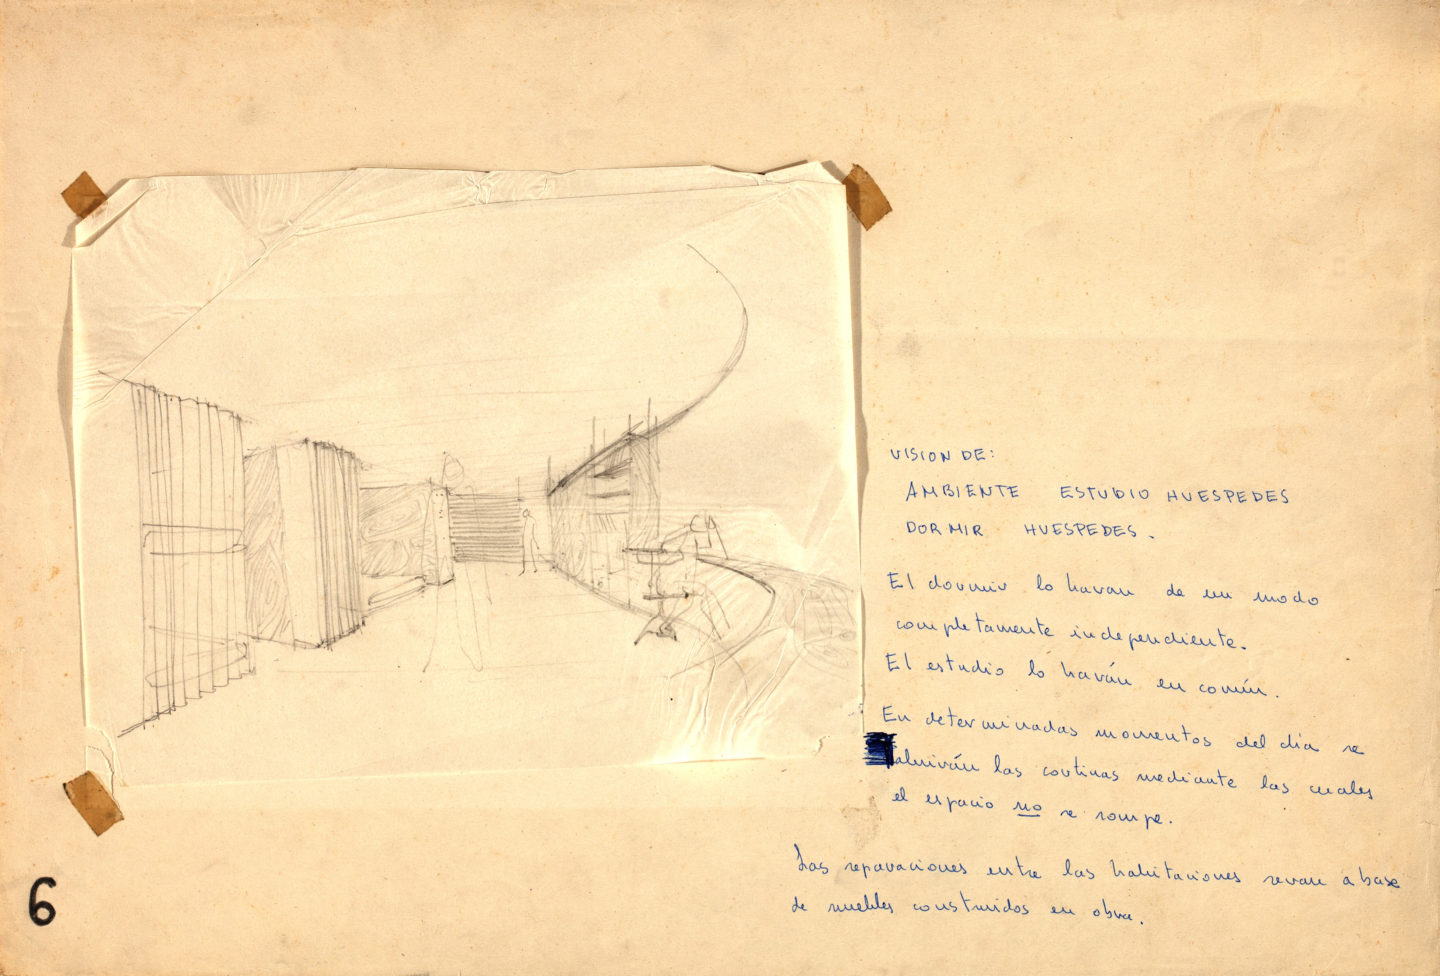 VISION DE:
AMBIENTE ESTUDIO HUESPEDES
DORMIR HUESPEDES.
El dormir lo haran de un modo
completamente independiente.
El estudio lo harán en común.
En determinadas momentos del dia se
abrirán las cortinas mediante las cuales
el espacio no se rompe.
Las separaciones entre las habitaciones seran a base
de muebles construidos en obra.
6